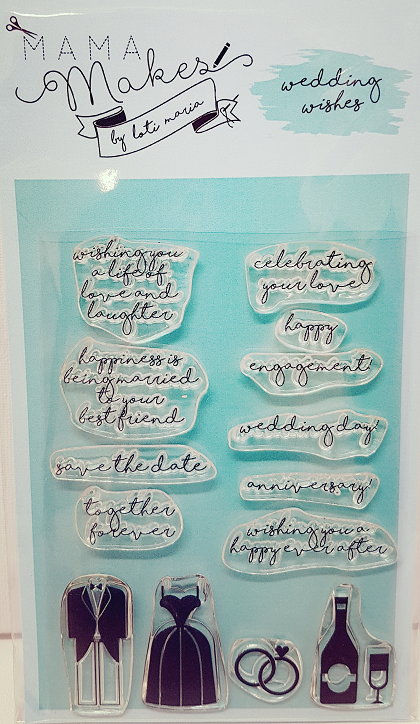 MAMA
Makes
by loti maria
wedding
wishes
wishing you
a life of
love and
laughter
happiness is
being married
to your
best friend
save the date
together
forever
celebrating
your love
happy
engagement!
wedding day!
anniversary!
wishing you a
happy ever after